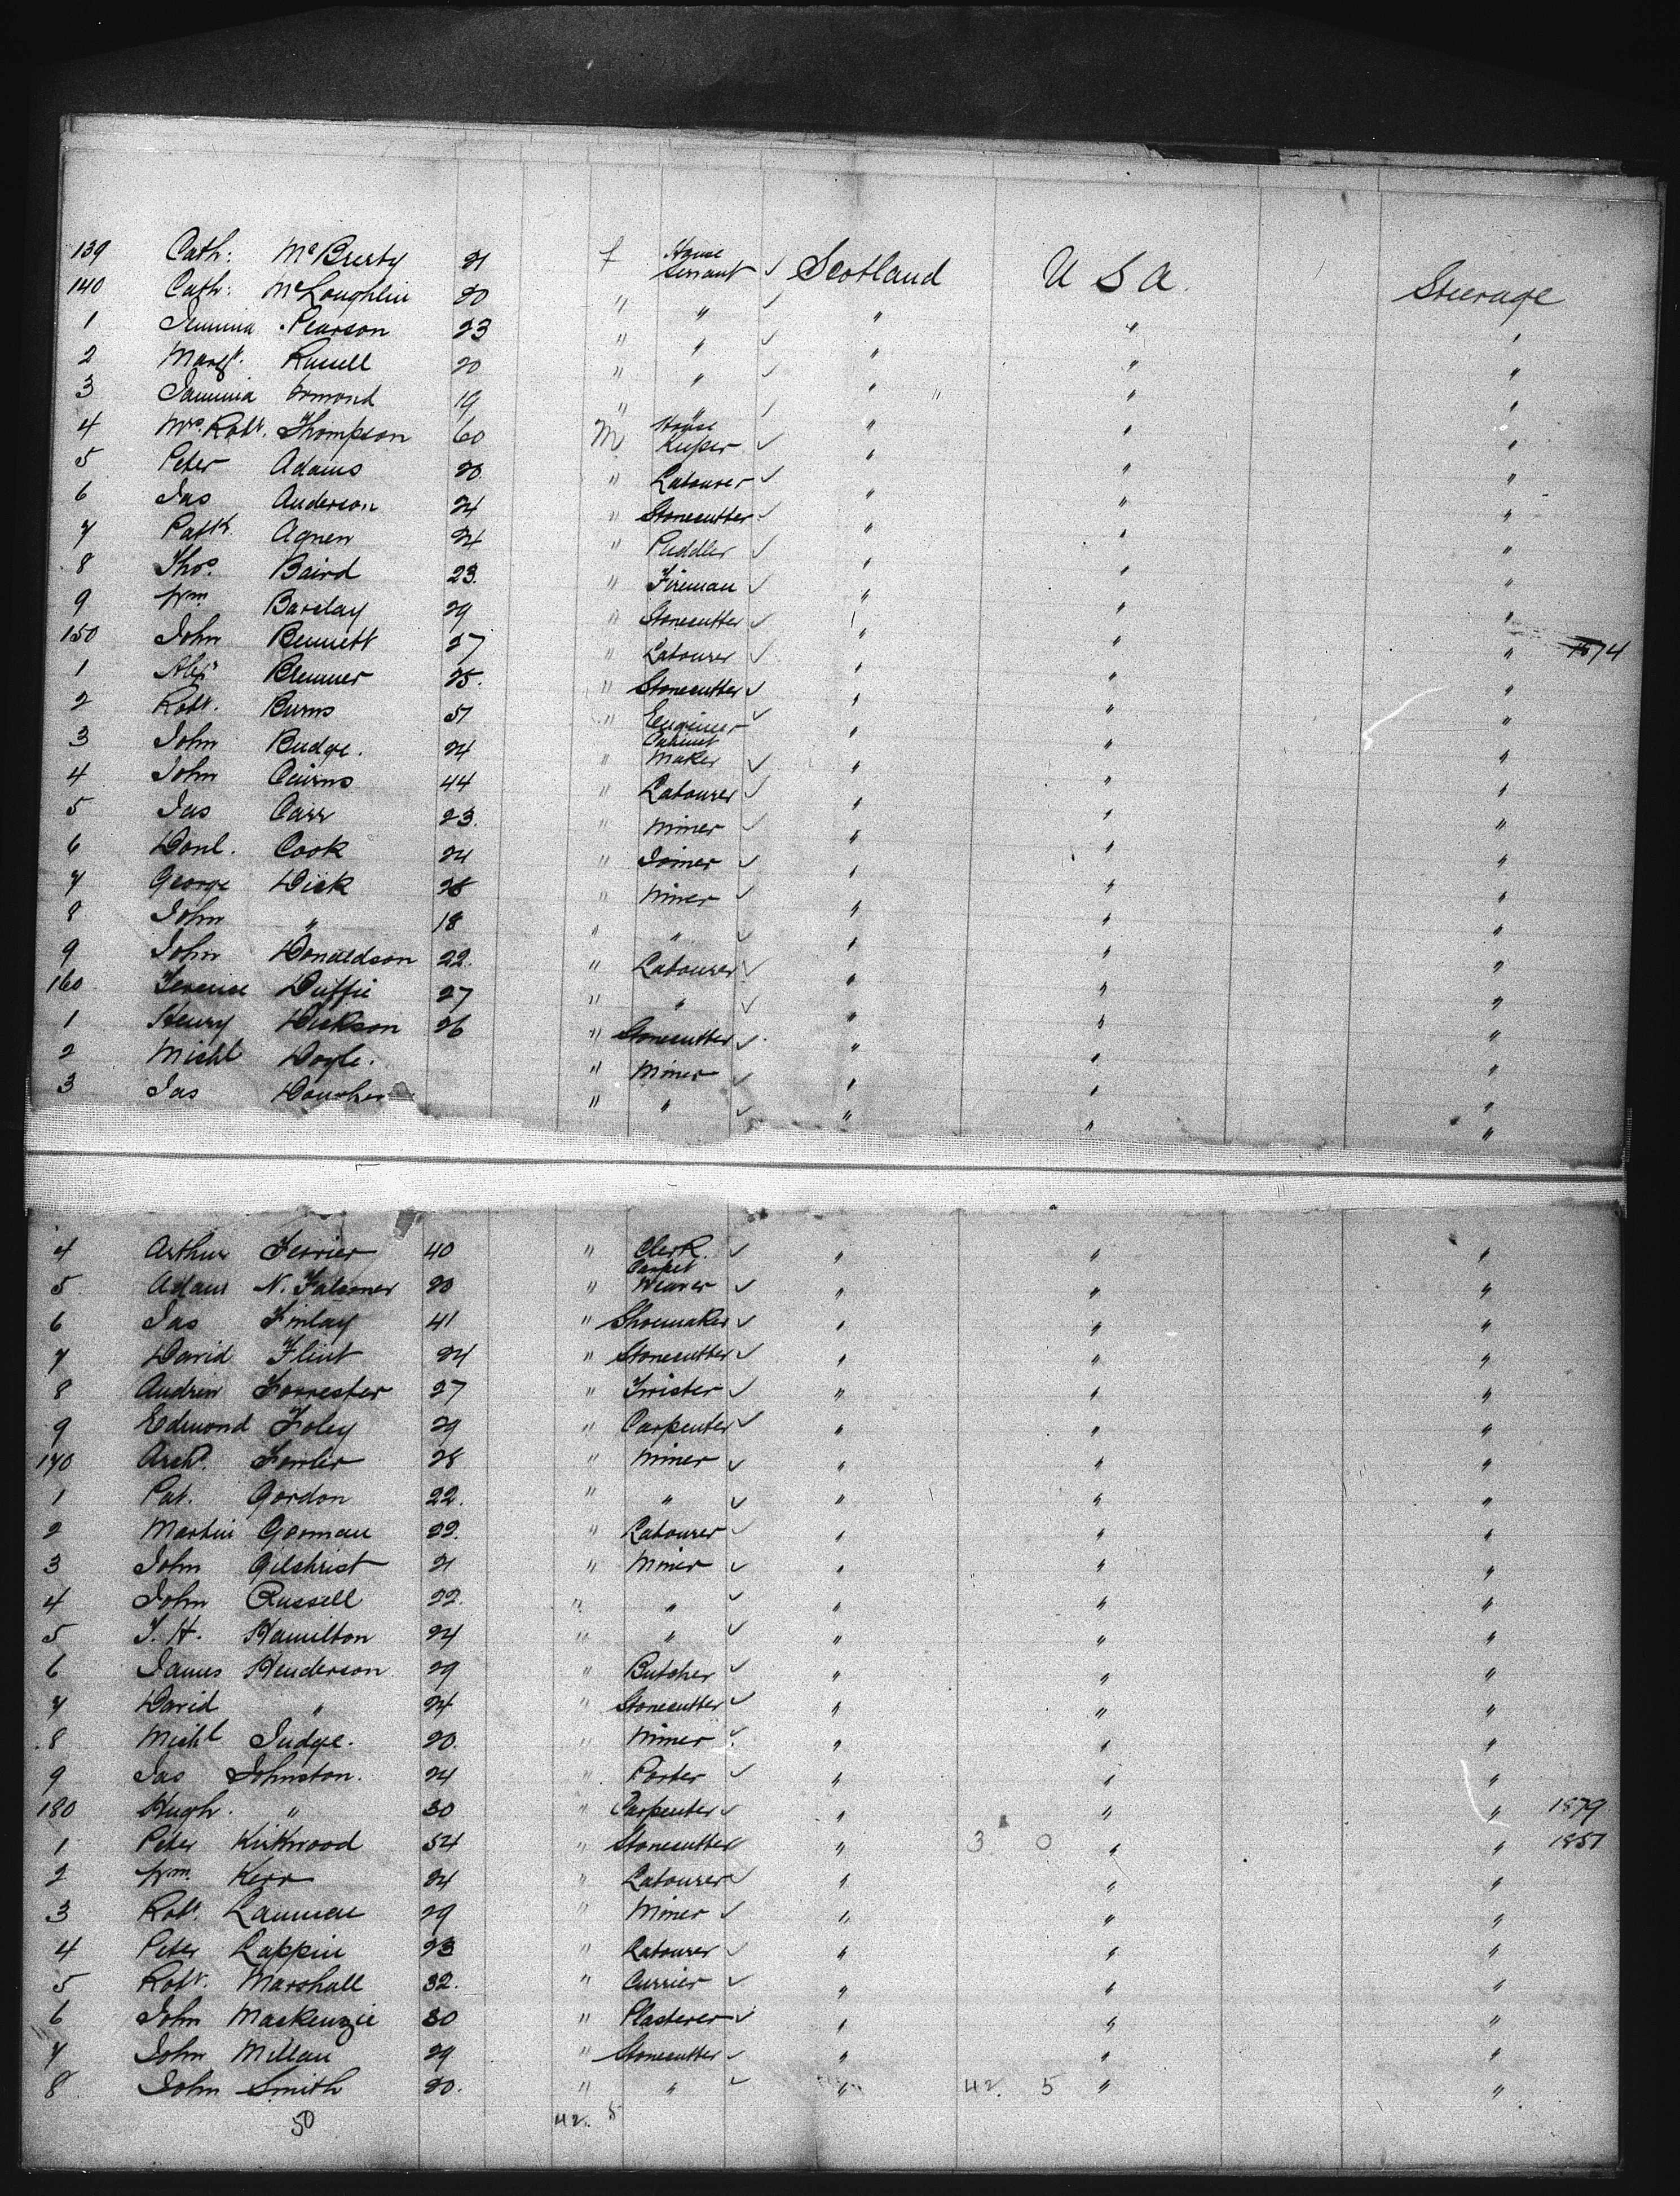 139 Cath: McBrerty 21 f House Servant ✓ Scotland U S A. Steerage
140 Cath: McLoughlin 20 " " ✓ " " "
1 Jemima Pearson 23 " " ✓ " " "
2 Margt. Russell 20 " " ✓ " " "
3 Jamima Ormond 19 " " ✓ " " "
4 Mrs. Robt. Thompson 60 M House Keeper ✓ " " "
5 Peter Adams 20 " Labourer ✓ " " "
6 Jas Anderson 24 " Stonecutter ✓ " " "
7 Patk. Agnew 24 " Puddler ✓ " " "
8 Thos. Baird 23. " Fireman ✓ " " "
9 Wm Barclay 29 " Stonecutter ✓ " " "
150 John Bennett 27 " Labourer ✓ " " " 74
1 Alexr Bremner 25. " Stonecutter ✓ " " "
2 Robt. Burns 51 " Engineer ✓ " " "
3 John Budge. 24 " Cabinet Maker ✓ " " "
4 John Cairns 44 " Labourer ✓ " " "
5 Jas Carr 23. " Miner ✓ " " "
6 Danl. Cook 24 " Joiner ✓ " " "
7 George Dick 28 " Miner ✓ " " "
8 John " 18 " " ✓ " " "
9 John Donaldson 22. " Labourer ✓ " " "
160 Terence Duffie 27 " " ✓ " " "
1 Henry Dickson 26 " Stonecutter ✓ " " "
2 Michl Doyle. " Miner ✓ " " "
3 Jas " " ✓ " " "
4 Arthur Ferrier 40 " Clerk. ✓ " " "
5 Adam N. Falconer 20 " Carpet Weaver ✓ " " "
6 Jas Finlay 41 " Shoemaker ✓ " " "
7 David Flint 24 " Stonecutter ✓ " " "
8 Andrew Forrester 27 " Twister ✓ " " "
9 Edmond Foley 29 " Carpenter ✓ " " "
170 Archd. Fowler 28 " Miner ✓ " " "
1 Pat. Gordon 22. " " ✓ " " "
2 Martin Gorman 22. " Labourer ✓ " " "
3 John Gilchrist 21 " Miner ✓ " " "
4 John Russell 22. " " ✓ " " "
5 J. H. Hamilton 24 " " ✓ " " "
6 James Henderson 29 " Butcher ✓ " " "
7 David " 24 " Stonecutter ✓ " " "
8 Michl Judge. 20. " Miner ✓ " " "
9 Jas Johnston. 24 " Porter ✓ " " "
180 Hugh. " 30 " Carpenter ✓ " " " 1879
1 Peter Kirkwood 54 " Stonecutter " 3 0 " " 1851
2 Wm. Kerr 24 " Labourer ✓ " " "
3 Robt. 29 " Miner ✓ " " "
4 Peter Lappin 23 " Labourer ✓ " " "
5 Robt. Marshall 32. " Currier ✓ " " "
6 John Mackenzie 30 " Plasterer ✓ " " "
7 John Millan 29 " Stonecutter ✓ " " "
8 John Smith 20. " " ✓ " 42. 5 " "
50 42. 5